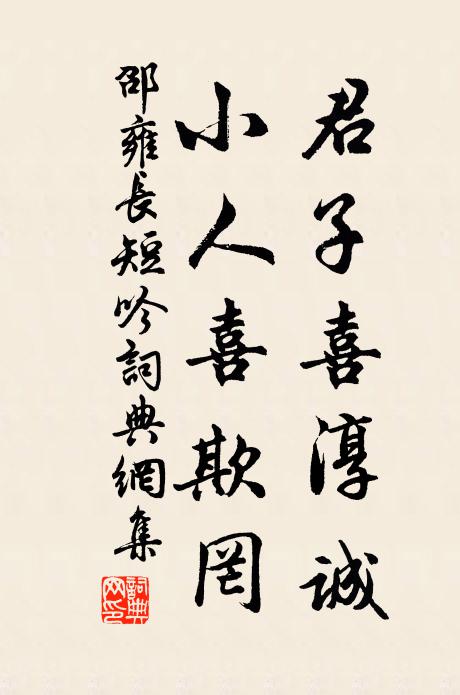 君子喜淳誠
小人喜欺罔
邵雍長短吟詞典網集
詞典網印